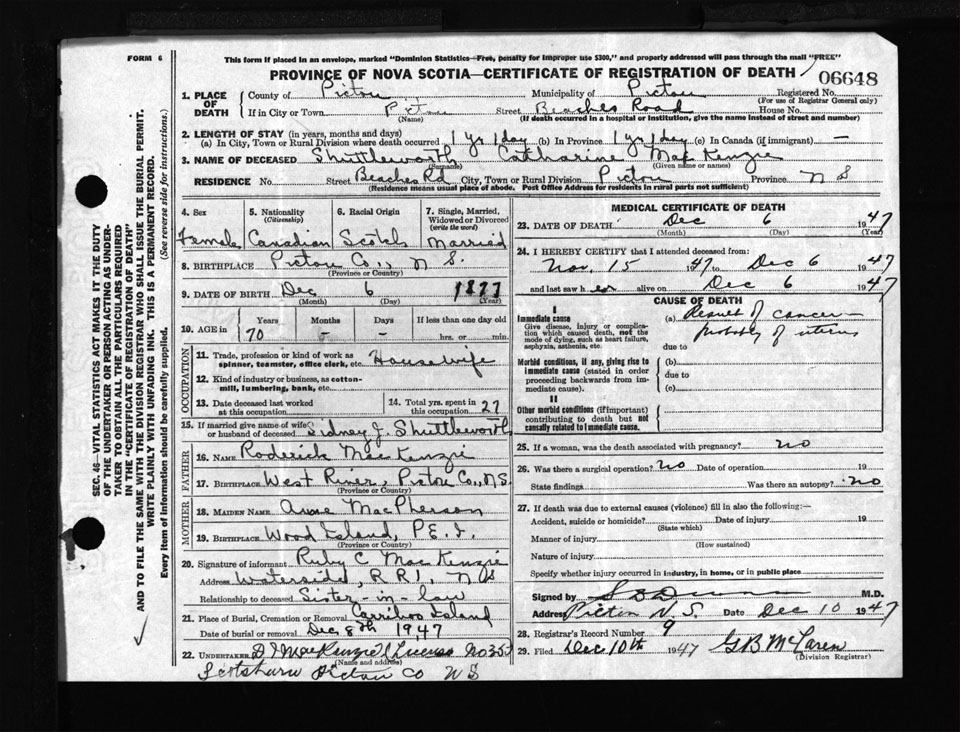 FORM 6
This form if placed in an envelope, marked "Dominion Statistics—Free, penalty for improper use $300," and properly addressed will pass through the mail "FREE"
PROVINCE OF NOVA SCOTIA—CERTIFICATE OF REGISTRATION OF DEATH
06648
1. PLACE OF DEATH
County of Pictou Municipality of Pictou Registered No.
(For use of Registrar General only)
If in City or Town Pictou Street Beaches Road House No.
(Name) (If death occurred in a hospital or institution, give the name instead of street and number)
2. LENGTH OF STAY (in years, months and days)
(a) In City, Town or Rural Division where death occurred 1 yr 1 day (b) In Province 1 yr 1 day (c) In Canada (if immigrant) —
3. NAME OF DECEASED Shuttleworth Catharine MacKenzie
(Surname) (Given name or names)
RESIDENCE No. Street Beaches Rd City, Town or Rural Division Pictou Province N S
(Residence means usual place of abode. Post Office Address for residents in rural parts not sufficient)
4. Sex
Female
5. Nationality (Citizenship)
Canadian
6. Racial Origin
Scotch
7. Single, Married, Widowed or Divorced (write the word)
Married
8. BIRTHPLACE Pictou Co., N S.
(Province or Country)
9. DATE OF BIRTH Dec 6 1877
(Month) (Day) (Year)
10. AGE in
Years Months Days If less than one day old
70 - - hrs. or min.
OCCUPATION
11. Trade, profession or kind of work as spinner, teamster, office clerk, etc. Housewife
12. Kind of industry or business, as cotton-mill, lumbering, bank, etc.
13. Date deceased last worked at this occupation
14. Total yrs. spent in this occupation 27
15. If married give name of wife or husband of deceased Sidney J. Shuttleworth
FATHER
16. NAME Roderick MacKenzie
17. BIRTHPLACE West River, Pictou Co., N.S.
(Province or Country)
MOTHER
18. MAIDEN NAME Anne MacPherson
19. BIRTHPLACE Wood Island, P.E.I.
(Province or Country)
20. Signature of informant Ruby C. MacKenzie
Address Waterside, R R 1, N S
Relationship to deceased Sister-in-law
21. Place of Burial, Cremation or Removal Carriboo Island
Date of burial or removal Dec 8th 1947
22. UNDERTAKER (License
(Name and address)
Pictou Co N S
MEDICAL CERTIFICATE OF DEATH
23. DATE OF DEATH Dec 6 1947
(Month) (Day) (Year)
24. I HEREBY CERTIFY that I attended deceased from:
Nov. 15 1947 to Dec 6 1947
and last saw her alive on Dec 6 1947
CAUSE OF DEATH
I
Immediate cause
Give disease, injury or complication which caused death, not the mode of dying, such as heart failure, asphyxia, asthenia, etc.
(a) Result of cancer
probably of uterus
due to
Morbid conditions, if any, giving rise to immediate cause (stated in order proceeding backwards from immediate cause).
(b)
due to
(c)
II
Other morbid conditions (if important) contributing to death but not causally related to immediate cause.
25. If a woman, was the death associated with pregnancy? no
26. Was there a surgical operation? no Date of operation 19
State findings Was there an autopsy? no
27. If death was due to external causes (violence) fill in also the following:—
Accident, suicide or homicide? Date of injury 19
(State which)
Manner of injury
(How sustained)
Nature of injury
Specify whether injury occurred in industry, in home, or in public place
Signed by M.D.
Address Pictou N. S. Date Dec 10 1947
28. Registrar's Record Number 9
29. Filed Dec 10th 1947 G B McLaren
(Division Registrar)
SEC. 46—VITAL STATISTICS ACT MAKES IT THE DUTY
OF THE UNDERTAKER OR PERSON ACTING AS UNDER-
TAKER TO OBTAIN ALL THE PARTICULARS REQUIRED
IN THE "CERTIFICATE OF REGISTRATION OF DEATH"
AND TO FILE THE SAME WITH THE DIVISION REGISTRAR WHO SHALL ISSUE THE BURIAL PERMIT.
WRITE PLAINLY WITH UNFADING INK. THIS IS A PERMANENT RECORD.
Every item of information should be carefully supplied. (See reverse side for instructions.)